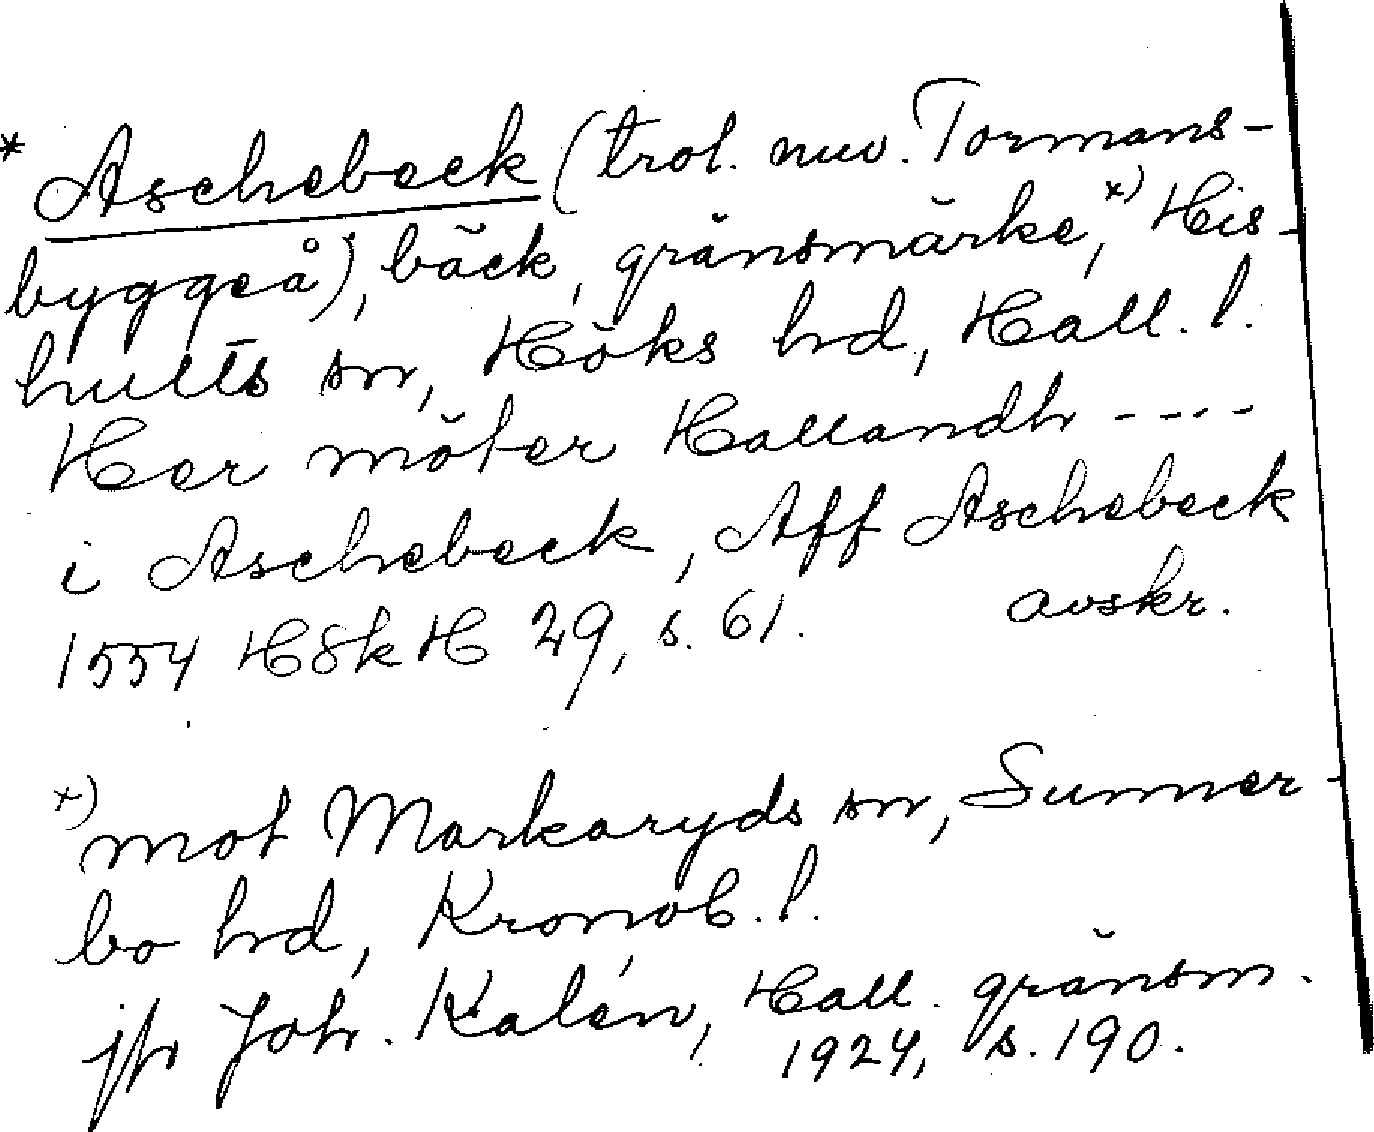 * Aschebeck (trol. nuv. Tormans-
byggeå), bäck, gränsmärke,×) His-
hults sn, Höks hd, Hall. l.
Her möter Hallandh ----
i Aschebeck, Aff Aschebeck
1554 HSkH 29, s. 61. avskr.
×) mot Markaryds sn, Sunner-
bo hd, Kronob. l.
jfr Joh. Kalén, Hall. gränsm.
1924, s. 190.